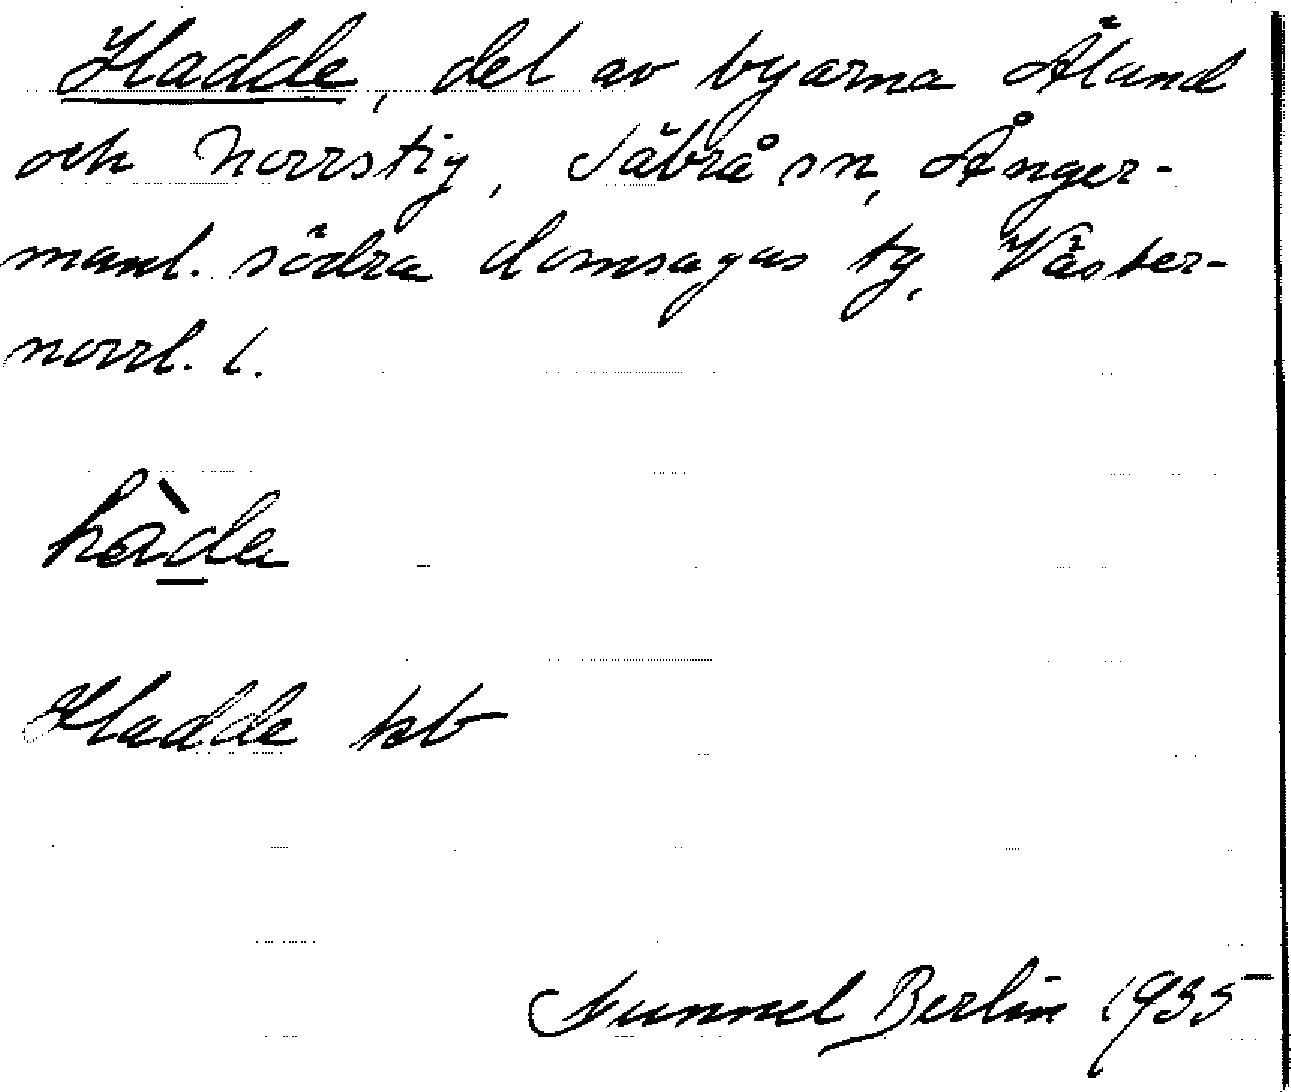 Hadde, del av byarna Åland
och Norrstig, Säbrå sn, Ånger-
manl. södra domsagas tg, Väster-
norrl. l.
hàda
Hadde kb
Gunnel Berlin 1935